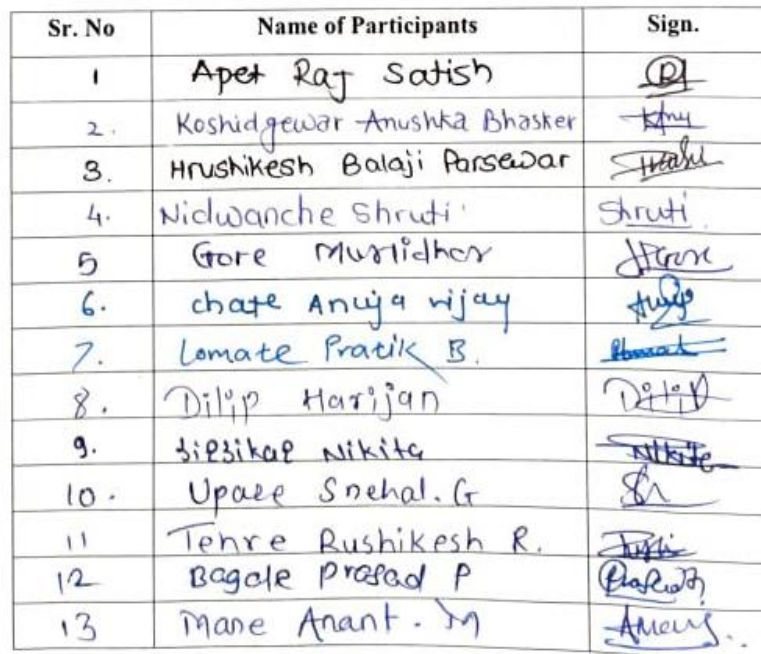 Sr. No Name of Participants Sign.
1 Apet Raj Satish
2. Koshidgewar Anushka Bhasker
3. Hrushikesh Balaji Parsewar
4. Nidwanche Shruti Shruti
5 Gore Murlidhar
6. chate Anuja vijay
7. Lomate Pratik B.
8. Dilip Harijan Dilip
9. Nikita Nikita
10. Snehal. G
11 Tehre Rushikesh R.
12 Bagale Prasad P
13 Mane Anant. M